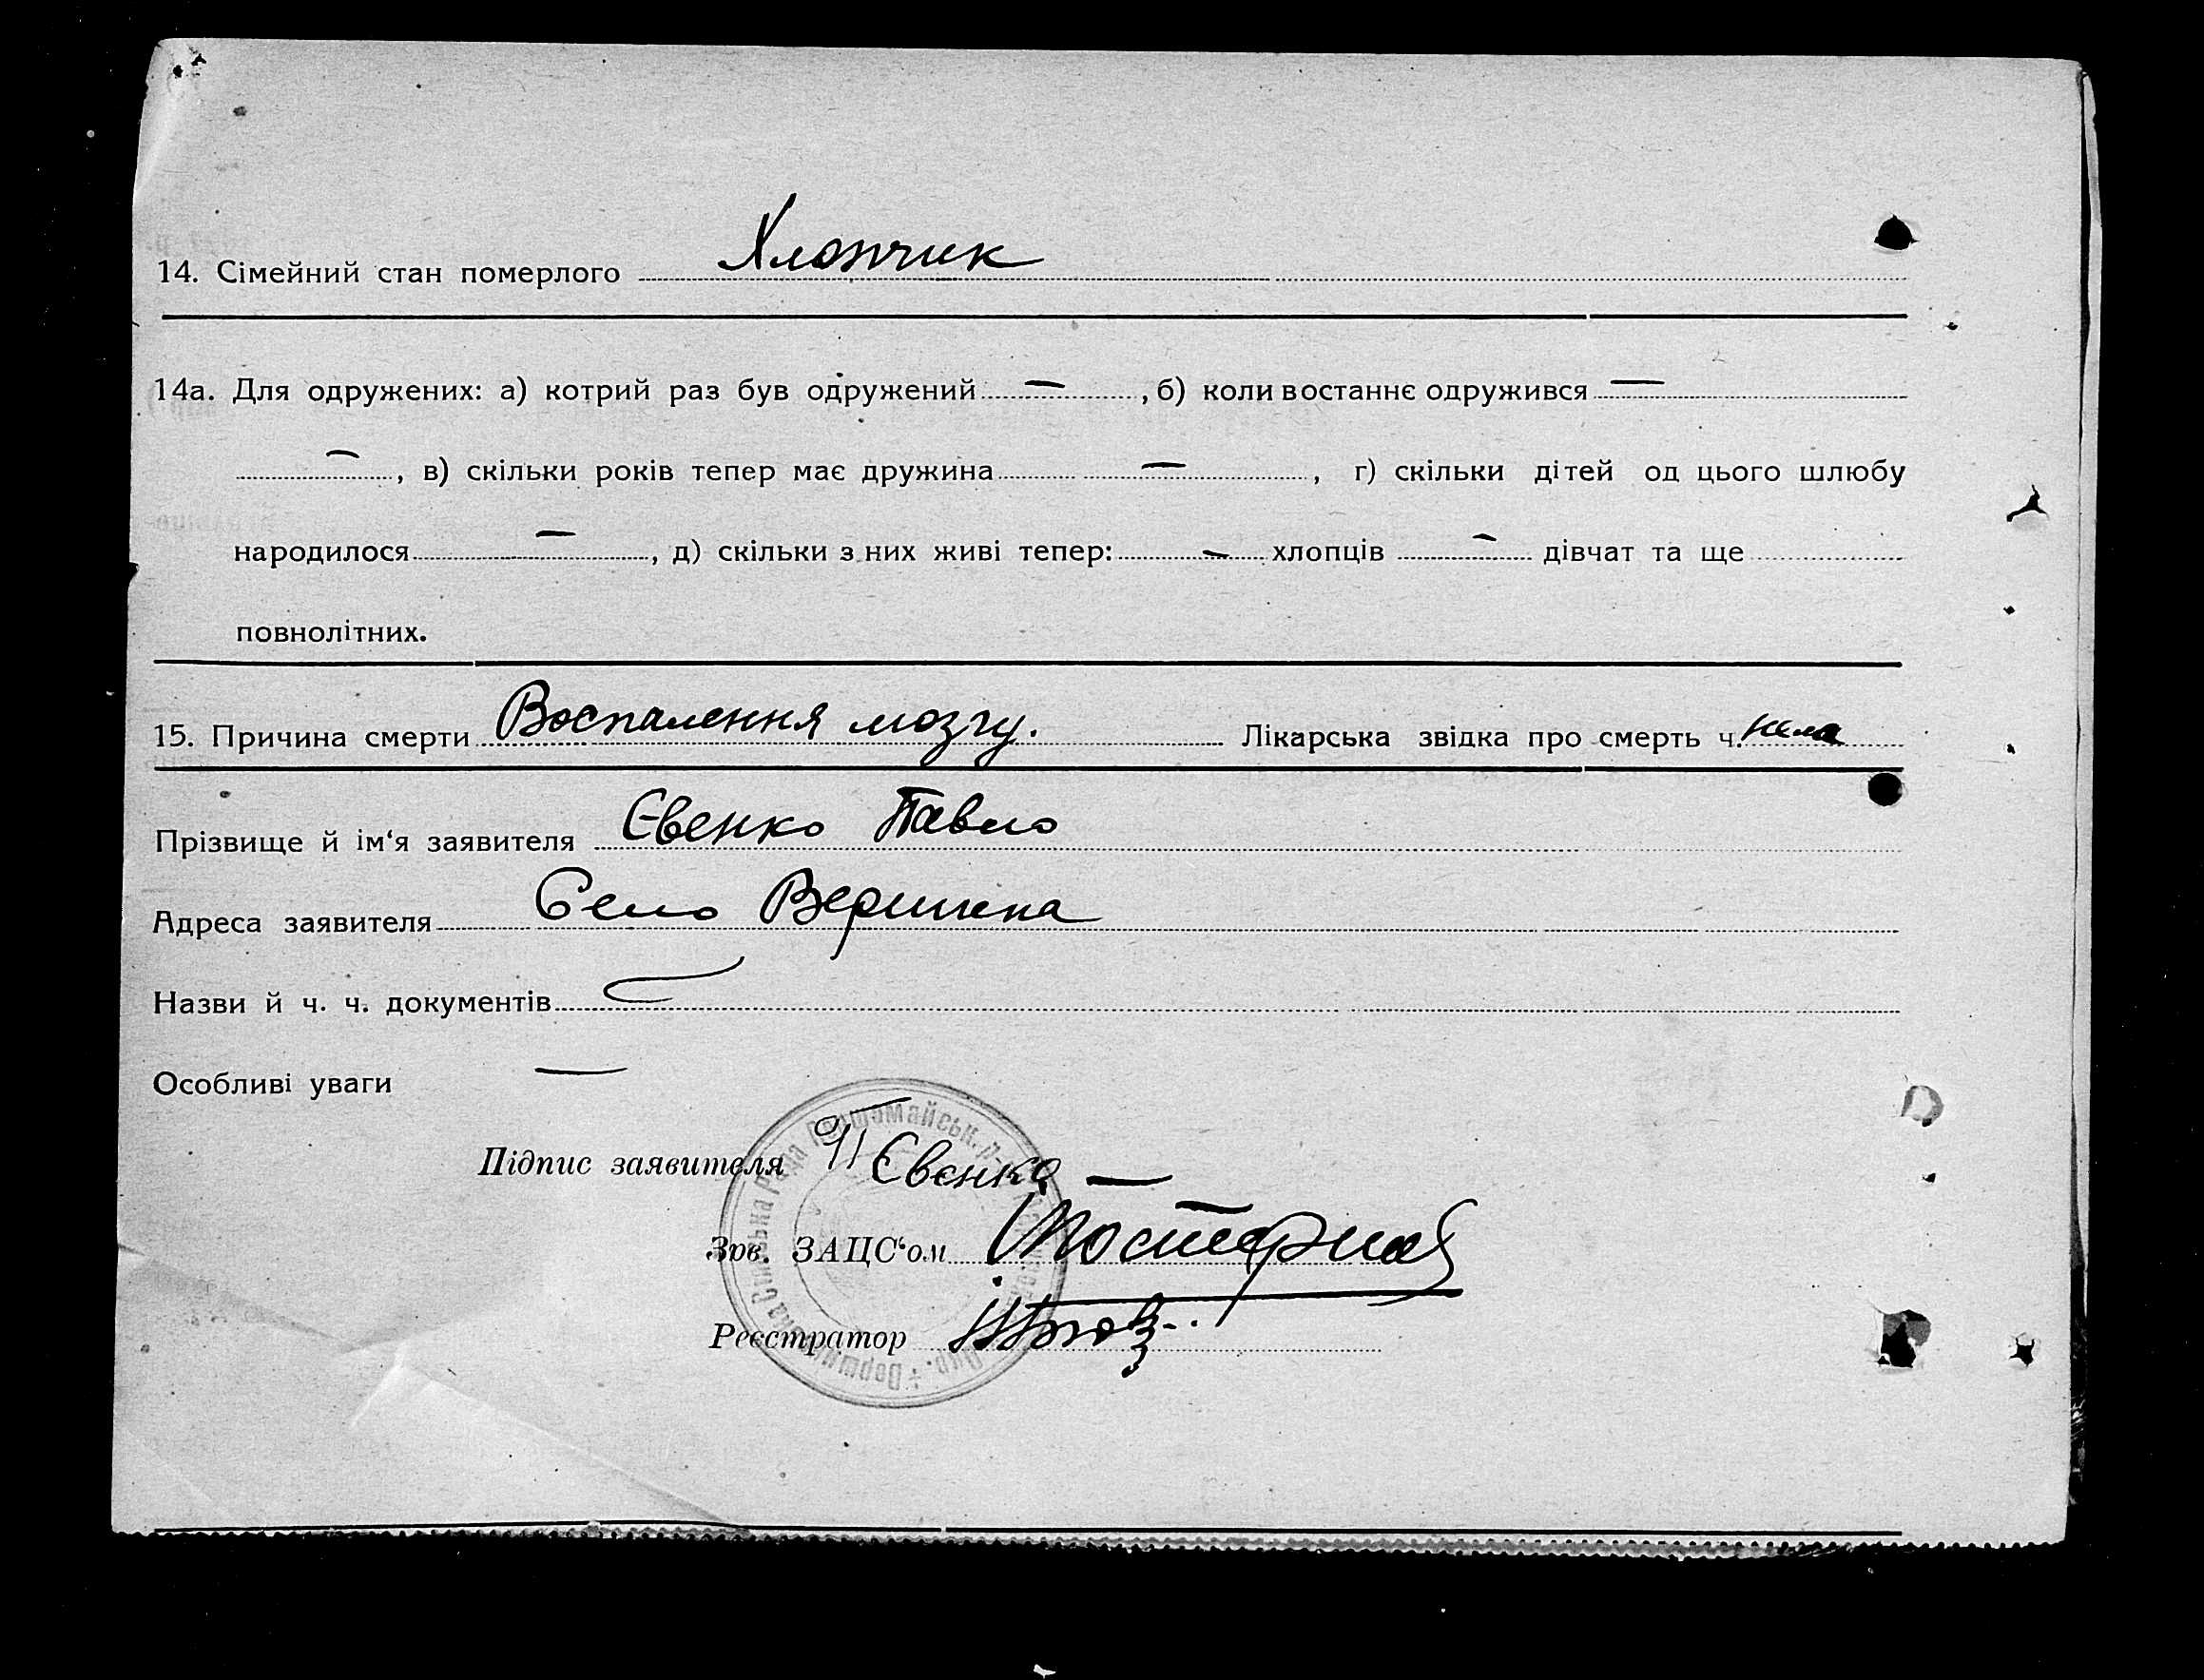 14. Сімейний стан померлого Хлопчик
14а. Для одружених: а) котрий раз був одружений — , б) коли востаннє одружився —
— , в) скільки років тепер має дружина — , г) скільки дітей од цього шлюбу
народилося — , д) скільки з них живі тепер: — хлопців — дівчат та ще
повнолітних.
15. Причина смерти Воспалення мозгу. Лікарська звідка про смерть ч. нема
Прізвище й ім‘я заявителя Євенко Павло
Адреса заявителя Село Вершина
Назви й ч. ч. документів
Особливі уваги —
Підпис заявителя Євенко —
Зав. ЗАЦС‘ом
Реєстратор
Сільська Рада Першомайськ.